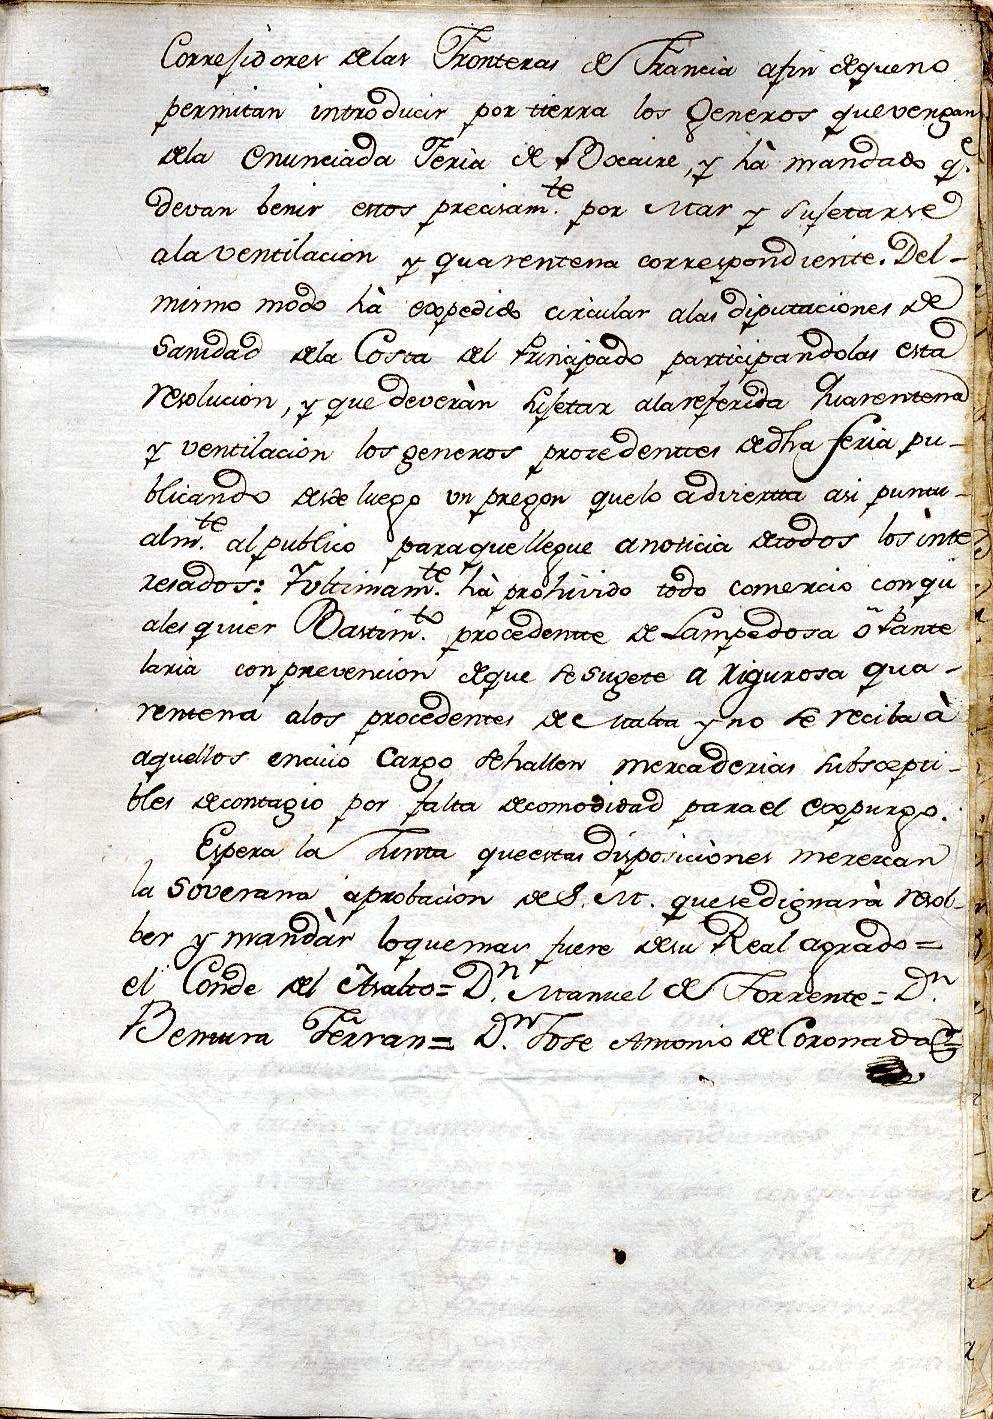 Corregidores delas Fronteras de Francia afin dequeno
permitan introducir por tierra los Generos quevengan
dela enunciada Feria de Bocaire, y hà mandado q.e
devan benir estos precisam.te por Mar y sugetarse
ala ventilacion y quarentena correspondiente. Del-
mismo modo hà expedido circular alas diputaciones de
Sanidad dela Costa del Principado participandolas esta
resolucion, y que deveràn sugetar ala referida Quarentena
y ventilacion los generos procedenttes dedha feria pu-
blicando desde luego un pregon quelo adviertta asi puntu-
alm.te al publico paraquellegue anoticia detodos los inte
resados: Yultimam.te hà prohivido todo comercio conqu
alesquier Bastim.to procedentte de Lampedosa ò Pante
laria con prevencion deque se sugete a rigurosa qua-
rentena alos procedentes de Malta y no se reciba à
aquellos encuio cargo sehallen mercaderias subscepti-
bles decontagio por falta decomodidad para el expurgo.
Espera la Junta queestas disposiciones merezcan
la soverana aprobacion de S. M. quesedignarà resol-
ber y mandàr loquemas fuere desu Real agrado=
el Conde del Asalto= D.n Manuel de Torrente= D.n
Bentura Ferran= D.n Jose Antonio de Coronada=